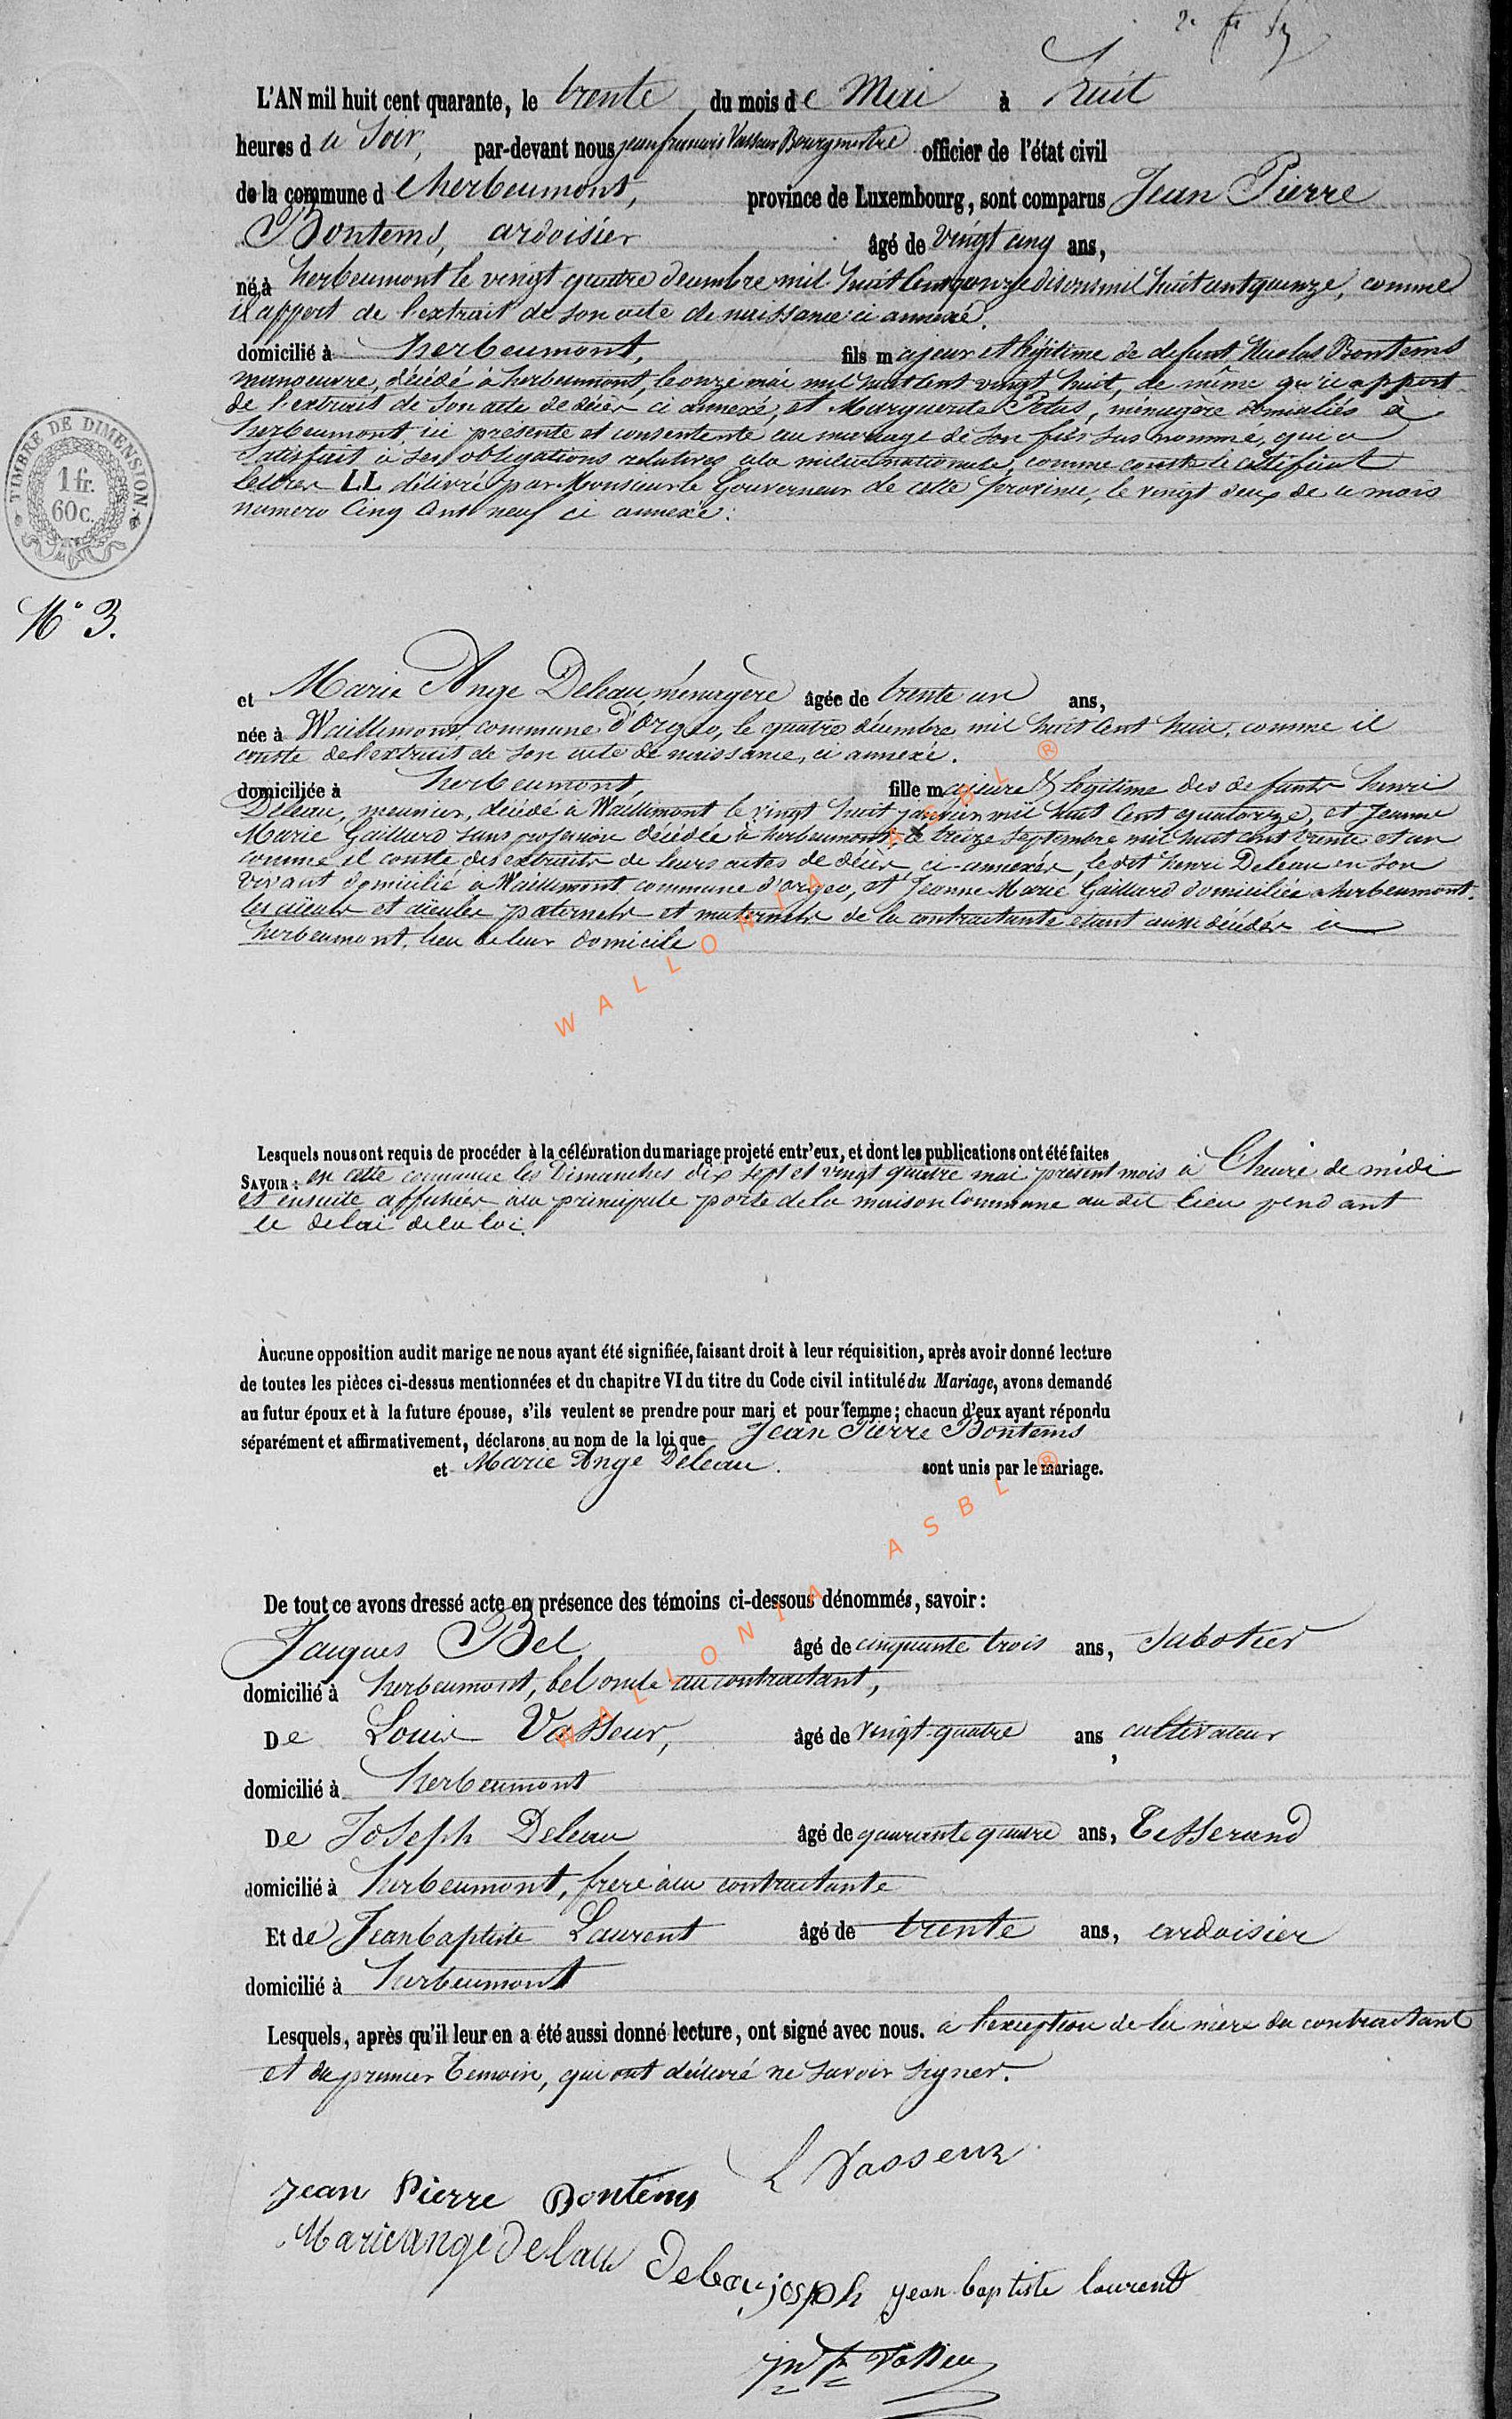 L'AN mil huit cent quarante, le trente du mois de Mai à huit
heures du Soir, par-devant nous jean francois Vasseur Bourgmestre officier de l'état civil
de la commune d'herbeumont, province de Luxembourg, sont comparus Jean Pierre
Bontems, ardoisier âgé de vingt cinq ans,
né à herbeumont le vingt quatre décembre mil huit Cent quinze disons mil huit cent quinze, comme
il appert de l'extrait de son acte de naissance ci annexé.
domicilié à herbeumont, fils majeur et légitime de defunt Nicolas Bontems
manoeuvre, décédé à herbeumont, le onze mai mil huit Cent vingt huit, de même qu'il appert
de l'extrait de son acte de décès ci annexé, et Marguerite Petus, ménagère domiciliée à
herbeumont, ici présente et consentente au mariage de son fils sus nommé, qui a
satisfait à ses obligations relatives à la milice nationale, comme conste le certificat
lettres LL délivré par Monsieur le Gouverneur de cette province, le vingt deux de ce mois
numero Cinq Cent neuf ci annexé.
TIMBRE DE DIMENSION.
1 fr.
60 c.
N° 3.
et Marie Ange Deleau, ménagère âgée de trente un ans,
née à Waillimont, commune d'Orgeo, le quatre décembre mil huit Cent huit, comme il
conste de l'extrait de son acte de naissance, ci annexé.
domiciliée à herbeumont, fille majeure & légitime des defunts henri
Deleau, meunier, décédé à Waillimont le vingt huit janvier mil huit Cent quatorze, et Jeanne
Marie Gaillard sans profession décédée à herbeumont, le treize Septembre mil huit cent trente et un
comme il conste des extraits de leurs actes de décès ci-annexés, le dit henri Deleau en son
vivant domicilié à Waillimont commune d'orgeo, et Jeanne Marie Gaillard domiciliée a herbeumont.
les aïeuls et aïeules paternels et maternels de la contractante étant aussi décédés à
herbeumont, lieu de leur domicile
WALLONIA ASBL ®
Lesquels nous ont requis de procéder à la célébration du mariage projeté entr'eux, et dont les publications ont été faites
SAVOIR: en cette commune les Dimanches dix sept et vingt quatre mai présent mois à l'heure de midi
et ensuite affichées à la principale porte de la maison Commune au dit lieu pendant
le delai de la loi.
Aucune opposition audit marige ne nous ayant été signifiée, faisant droit à leur réquisition, après avoir donné lecture
de toutes les pièces ci-dessus mentionnées et du chapitre VI du titre du Code civil intitulé du Mariage, avons demandé
au futur époux et à la future épouse, s'ils veulent se prendre pour mari et pour femme; chacun d'eux ayant répondu
séparément et affirmativement, déclarons au nom de la loi que Jean Pierre Bontems
et Marie Ange Deleau. sont unis par le mariage.
WALLONIA ASBL ®
De tout ce avons dressé acte en présence des témoins ci-dessous dénommés, savoir:
Jacques Bel âgé de cinquante trois ans, Sabotier
domicilié à herbeumont, bel oncle au contractant,
De Louis Vasseur, âgé de vingt-quatre ans, cultivateur
domicilié à herbeumont
De Joseph Deleau âgé de quarante quatre ans, Tisserand
domicilié à herbeumont, frere à la contractante
Et de Jean baptiste Laurent âgé de trente ans, ardoisier
domicilié à herbeumont
Lesquels, après qu'il leur en a été aussi donné lecture, ont signé avec nous. à l'exception de la mère du contractant
et du premier Temoin, qui ont déclaré ne savoir signer.
L Vasseur
Jean Pierre Bontems
Marie ange Delau
Deleau josph jean baptiste laurent